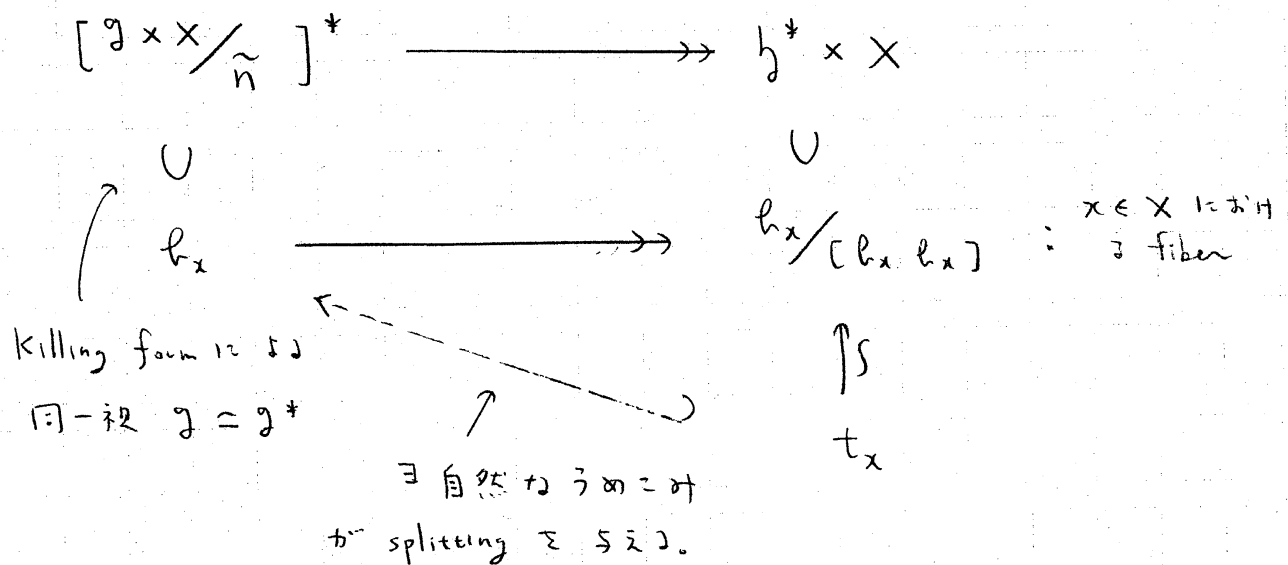 [ g × X / ñ ]* ↠ h* × X
∪ ∪
b_x ↠ b_x / [b_x b_x] : x ∈ X におけ
る fiber
Killing form による
同一視 g ≃ g*
t_x
∃ 自然なうめこみ
が splitting を与える。